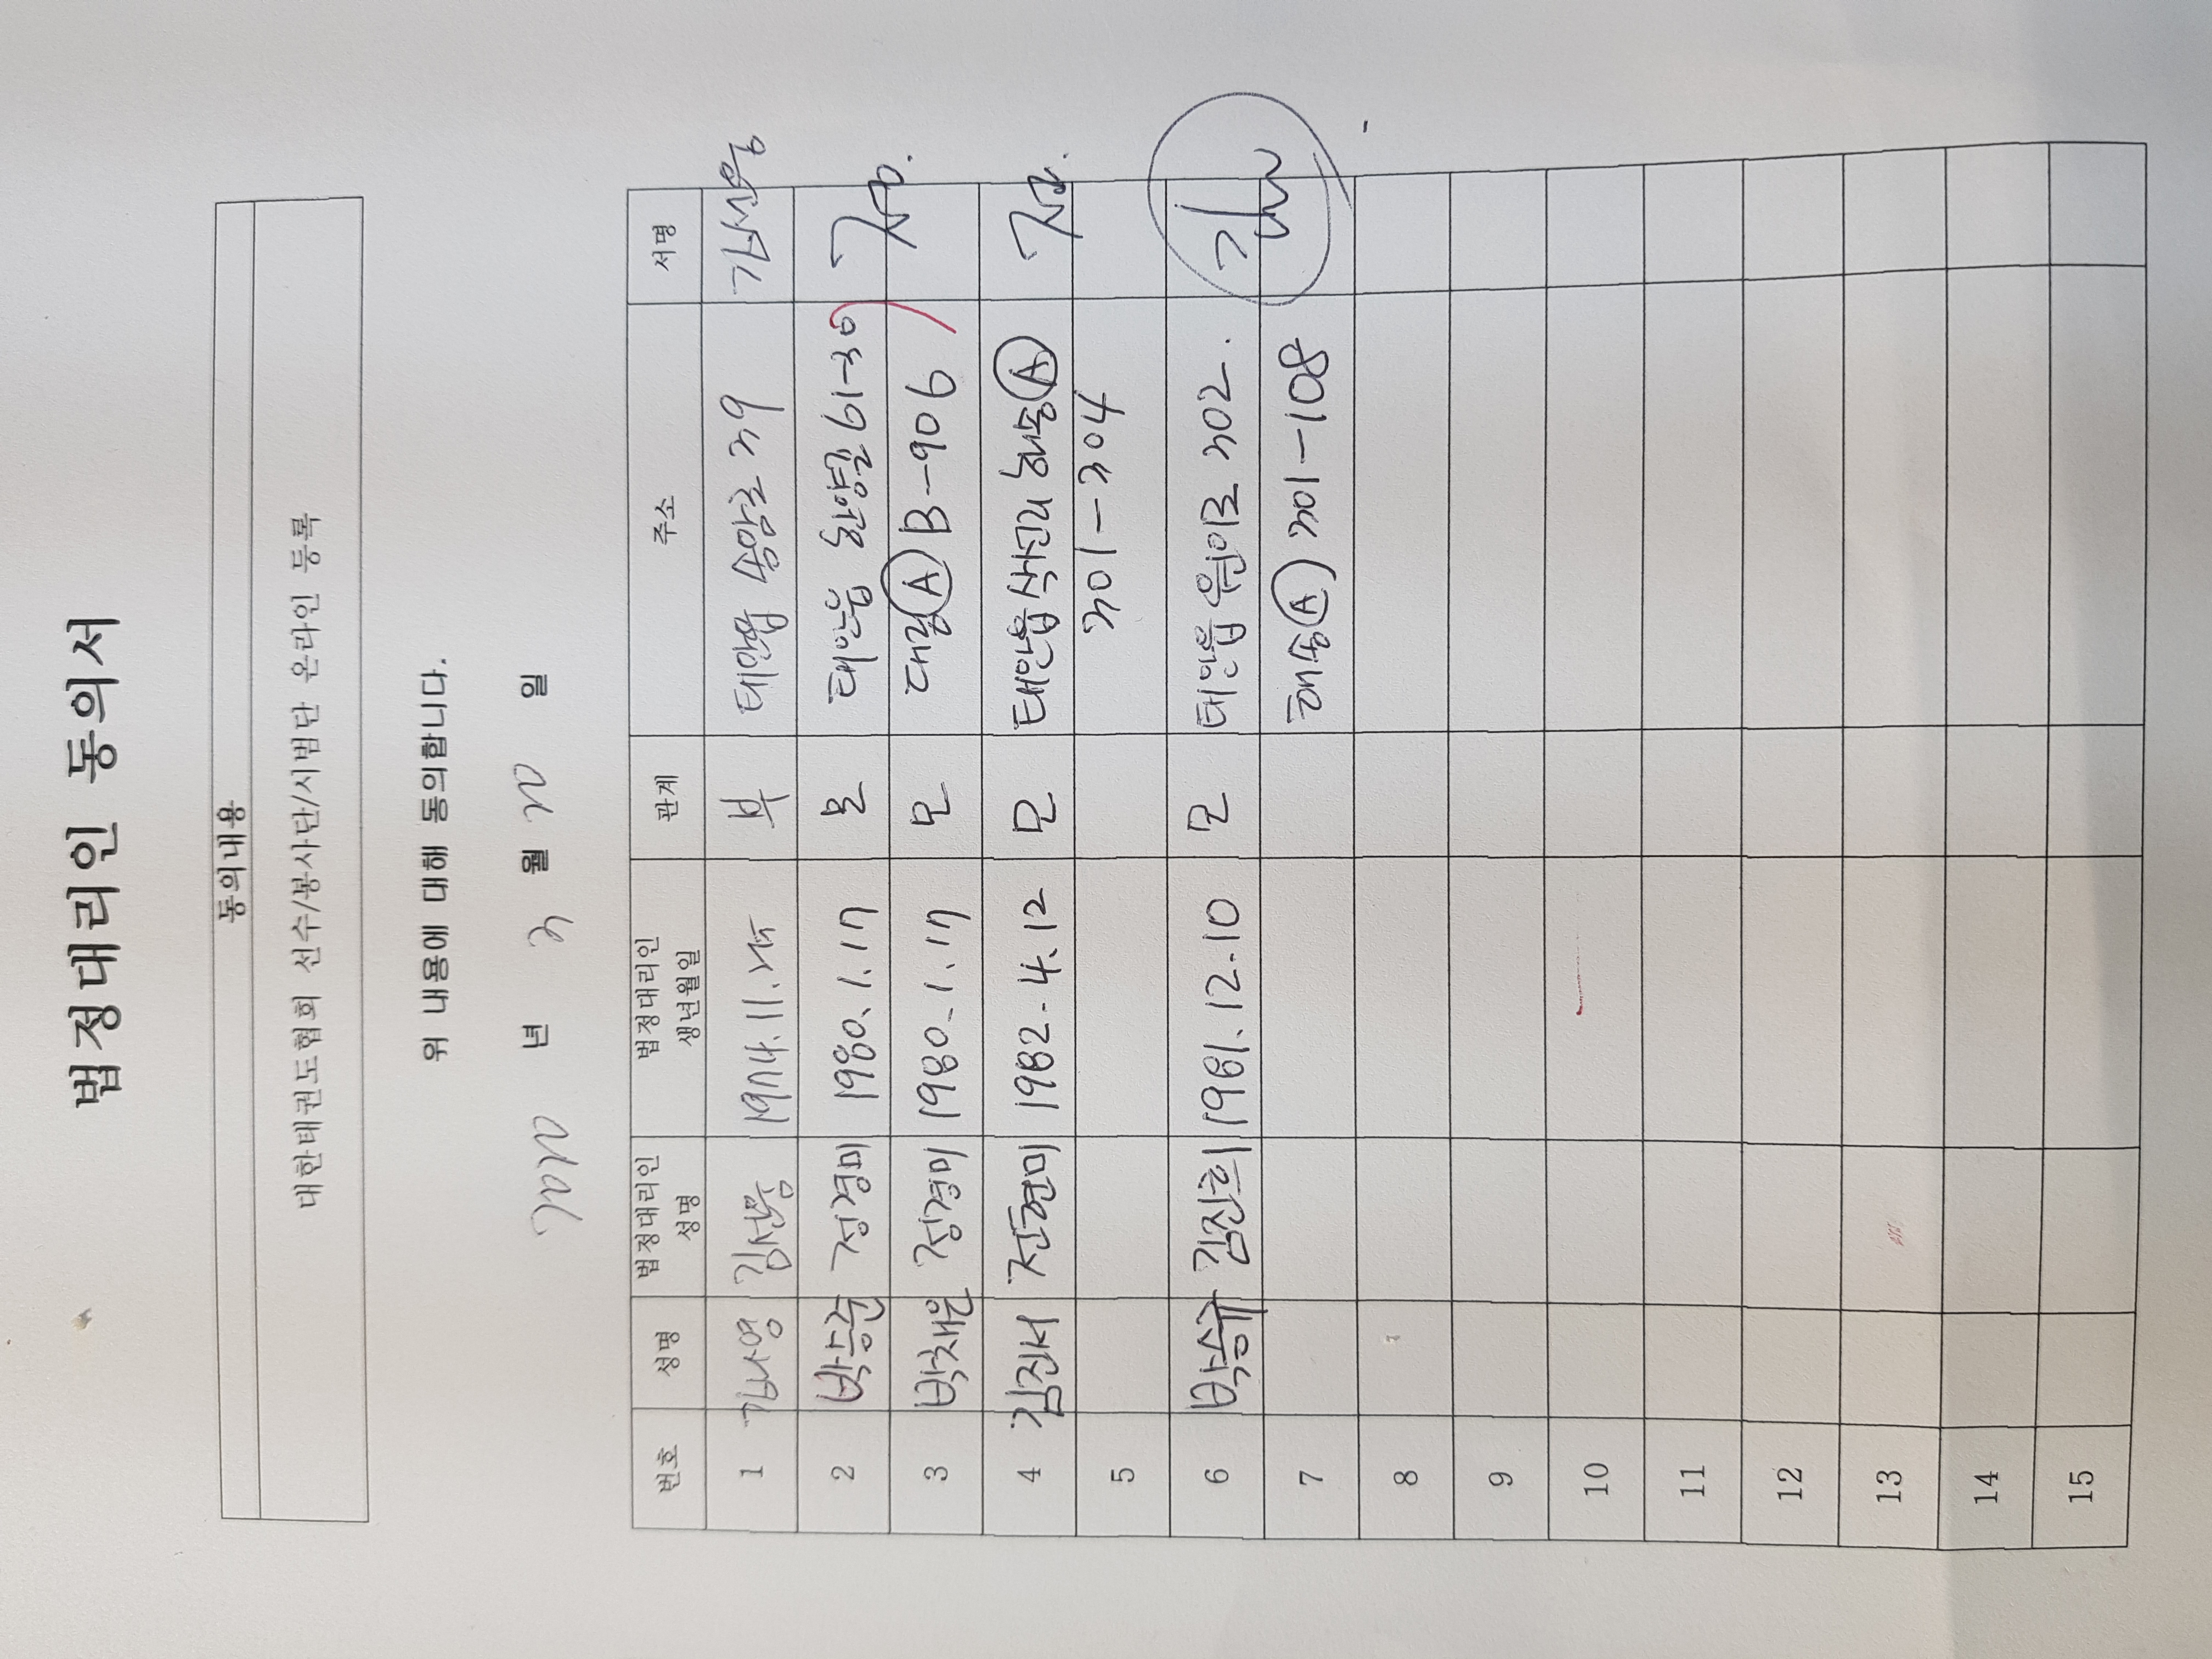 법정대리인 동의서
동의내용
대한태권도협회 선수/봉사단/시범단 온라인 등록
위 내용에 대해 동의합니다.
2020 년 3 월 20 일
번호 성명 법정대리인 성명 법정대리인 생년월일 관계 주소 서명
1 김나영 1974.11.25 부 태안읍 송암로 39
2 박승준 정경미 1980.1.17 모 태안읍 환영길 61-30
3 박채운 정경미 1980.1.17 모 대림Ⓐ B-906
4 김진서 전현미 1982.4.12 모 태안읍 삭선리 해송Ⓐ
5 301-304
6 박승유 김진희 1981.12.10 모 태안읍 원이로 302.
7 해송Ⓐ 301-108
8
9
10
11
12
13
14
15